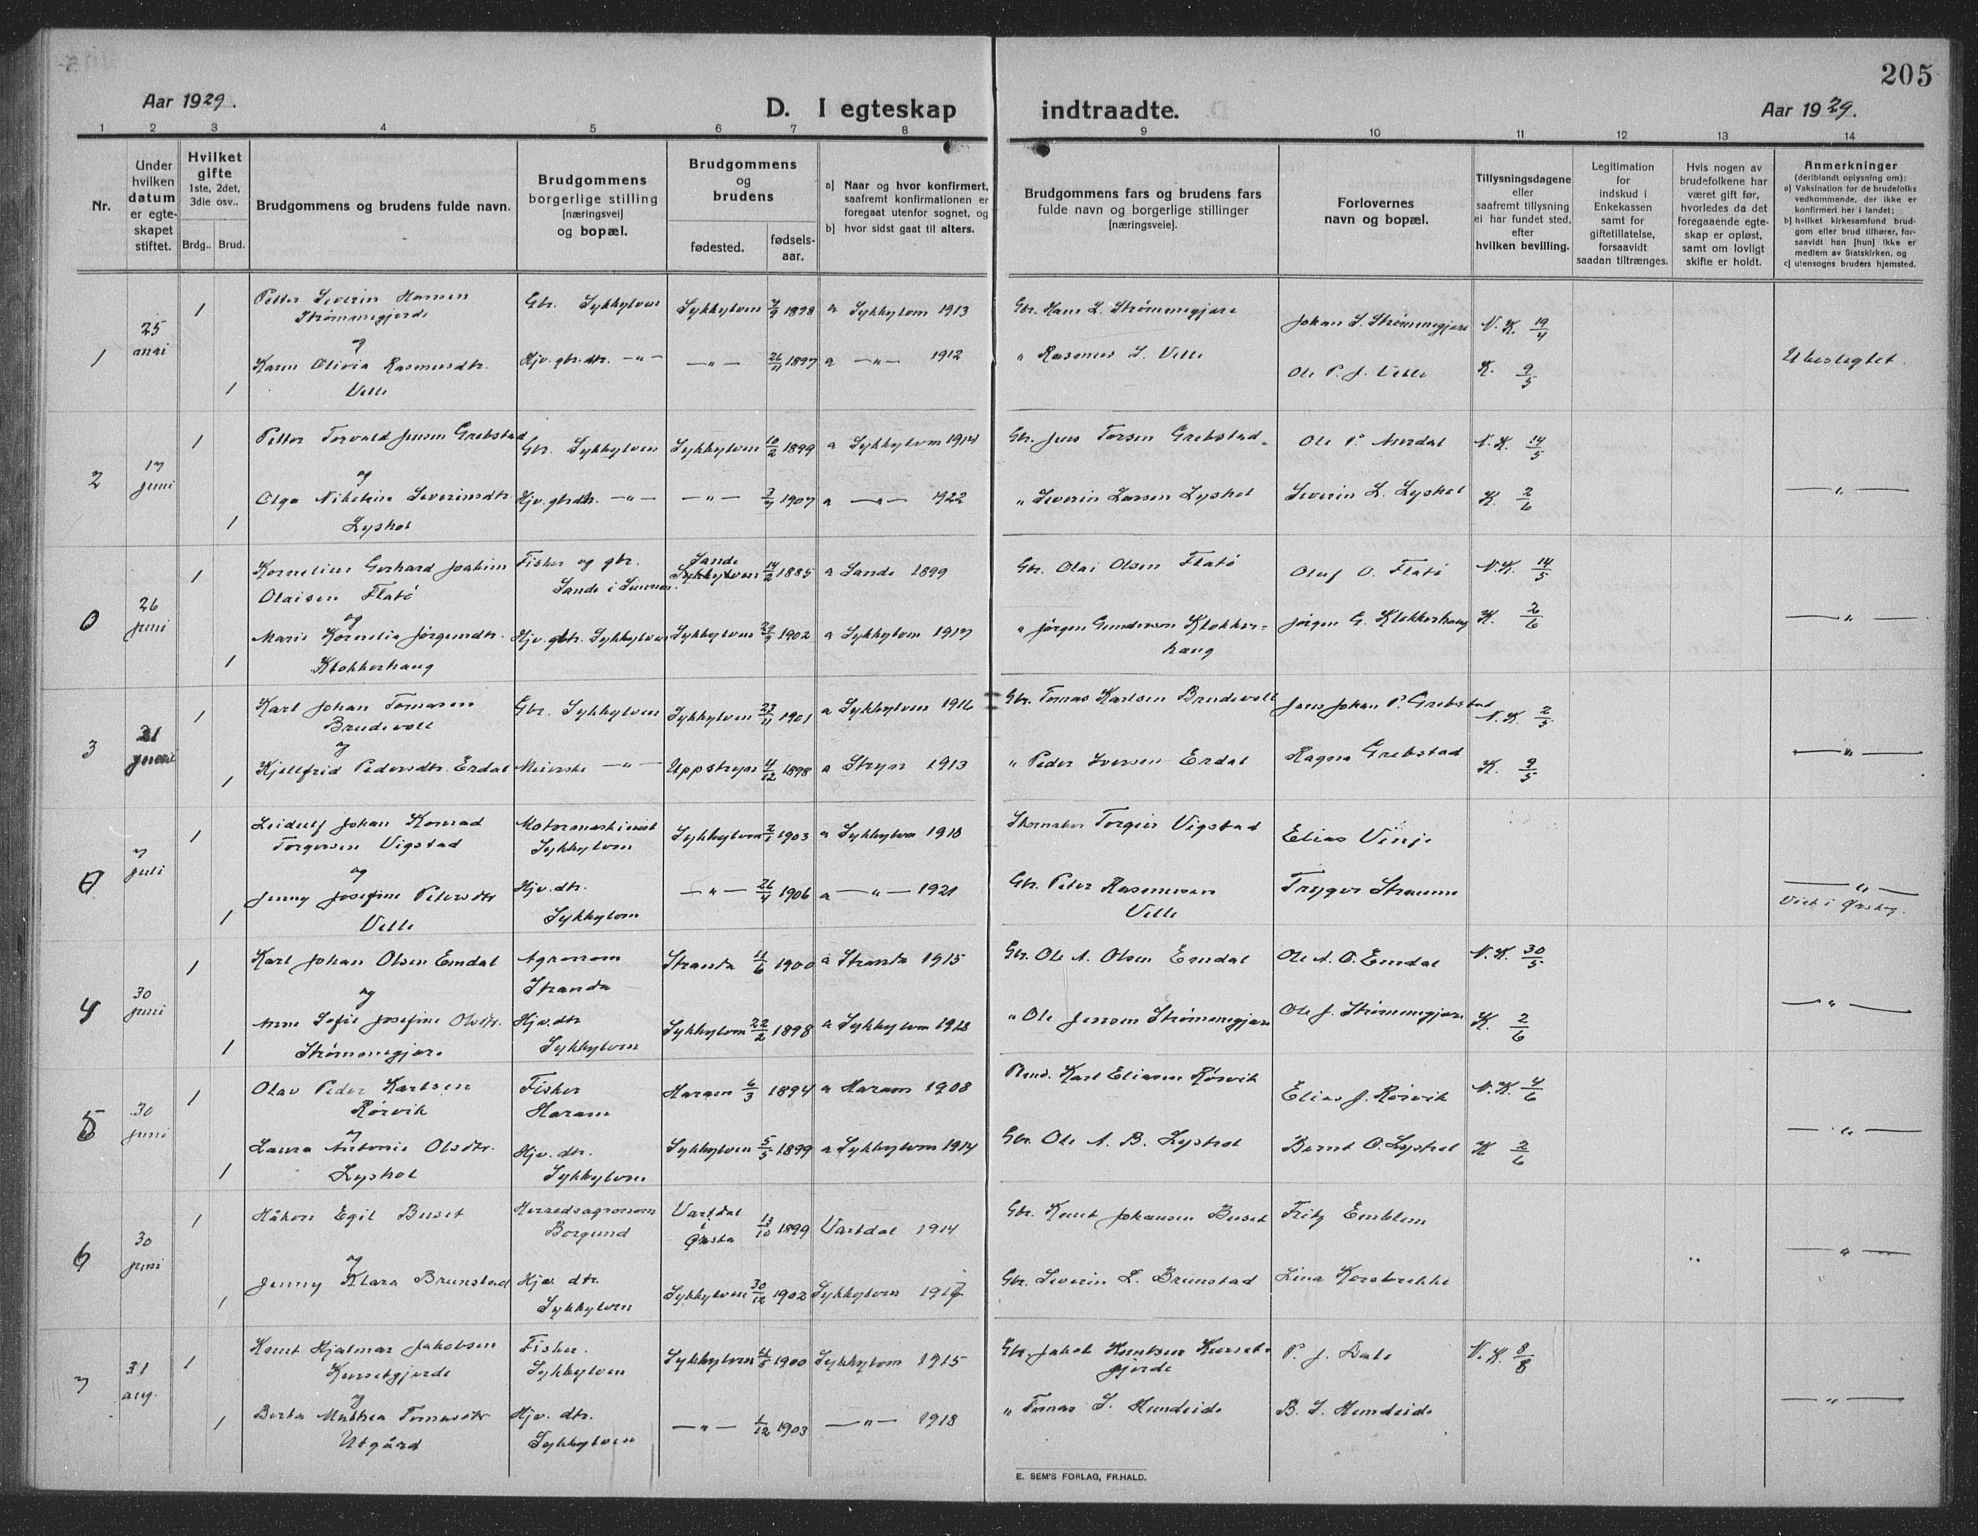 205
Aar 1929.
D. I egteskap indtraadte.
Aar 1929.
1 2 3 4 5 6 7 8 9 10 11 12 13 14
Nr.
Under hvilken datum er egte-skapet stiftet.
Hvilket gifte 1ste, 2det, 3die osv..
Brdg.. Brud.
Brudgommens og brudens fulde navn.
Brudgommens borgerlige stilling [næringsvei] og bopæl.
Brudgommens og brudens
fødested. fødsels-aar.
a] Naar og hvor konfirmert, saafremt konfirmationen er foregaat utenfor sognet, og
b] hvor sidst gaat til alters.
Brudgommens fars og brudens fars fulde navn og borgerlige stillinger [næringsveie].
Forlovernes navn og bopæl.
Tillysningsdagene eller saafremt tillysning ei har fundet sted, efter hvilken bevilling.
Legitimation for indskud i Enkekassen samt for giftetillatelse, forsaavidt saadan tiltrænges.
Hvis nogen av brudefolkene har været gift før, hvorledes da det foregaaende egte-skap er opløst, samt om lovligt skifte er holdt.
Anmerkninger (deriblandt oplysning om):
a] Vaksination for de brudefolks vedkommende, der ikke er konfirmeri her i landet;
b] hvilket kirkesamfund brud-gom eller brud tilhører, for-saavidt han [hun] ikke er medlem av Statskirken, og
c] utensogns bruders hjemsted.
1 25 mai 1 Petter Severin Hansen Strømmegjerde Gbr. Sykkylven Sykkylven 1898 a Sykkylven 1913 Gbr. Hans L. Strømmegjære Johan S. Strømmegjære N. K. 19/4
og
1 Karen Olivia Rasmusdtr. Velle Hjv. gbr.dtr. — " — — " — 26/11 1897 a — " — 1912 " Rasmus S. Velle Ole P. J. Velle K. 9/5 Ubeslegtet
2 17 juni 1 Petter Torvald Jensen Grebstad Gbr. Sykkylven Sykkylven 10/2 1899 a Sykkylven 1914 Gbr. Jens Torsen Grebstad Ole P. Aurdal N. K. 14/5
og
1 Olga Nikoline Severinsdtr Lyshol Hjv. gbrdtr. — " — — " — 1907 a — " — 1922 " Severin Larsen Lyshol Severin L. Lyshol K. 2/6 — " —
0 26 juni 1 Kornelius Gerhard Joakim Olaisen Flatø Fisker og gbr. Sande i Sunnm. Sande Sykkylven 14/2 1885 a Sande 1899 Gbr. Olai Olsen Flatø Oluf O. Flatø N. K. 14/5
og
1 Marie Kornelia Jørgendtr. Klokkerhaug Hjv. gbr. Sykkylven Sykkylven 1902 a Sykkylven 1917 " Jørgen Gunderson Klokker-haug Jørgen G. Klokkerhaug K. 2/6 — " —
3 21 1 Karl Johan Tomasen Brudevoll Gbr. Sykkylven Sykkylven 23/11 1901 a Sykkylven 1916 Gbr. Tomas Karlsen Brudevoll Jens Johan P. Grebstad N. K. 2/5
og
1 Kjellfrid Pedersdtr. Erdal Meierske — " — Uppstryn 4/12 1898 a Stryn 1913 " Peder Iversen Erdal Ragna Grebstad K. 9/5 — " —
0 7 juli 1 Leidulf Johan Konrad Torgersen Vigstad Motormaskinist Sykkylven Sykkylven 1903 a Sykkylven 1918 Skomaker Torgeir Vigstad Elias Vinje
og
1 Jenny Josefine Petersdtr Velle Hjv. dtr. Sykkylven — " — 26/4 1906 a — " — 1921 Gbr. Peter Rasmussen Velle Trygve Straume — " — Viet i Ørskog.
4 30 juni 1 Karl Johan Olsen Emdal Agronom Stranda Stranda 11/6 1900 a Stranda 1915 Gbr. Ole A. Olsen Emdal Ole A. O. Emdal N. K. 30/5
og
1 Anne Sofie Josefine Olsdtr. Strømmegjære Hjv. dtr Sykkylven Sykkylven 22/2 1898 a Sykkylven 1913 " Ole Jensen Strømmegjære Ole J. Strømmegjære K. 2/6 — " —
5 30 juni 1 Olav Peder Karlsen Rørvik Fisker Haram Haram 6/3 1894 a Haram 1908 Karl Eliasen Rørvik Elias J. Rørvik N. K. 4/6
og
1 Laura Antonie Olsdtr. Lyshol Hjv. dtr. Sykkylven Sykkylven 5/5 1899 a Sykkylven 1914 Gbr. Ole A. B. Lyshol Bernt O. Lyshol K 2/6 — " —
6 30 juni 1 Håkon Egil Buset Heradsagronom Borgund Vartdal i Ørsta 13/10 1899 Vartdal 1914 Gbr. Knut Johansen Buset Fritz Emblem
og
1 Jenny Klara Brunstad Hjv. dtr. Sykkylven Sykkylven 30/12 1902 Sykkylven 1917 Gbr. Severin L. Brunstad Lina Korsbrekke — " —
7 31 aug. 1 Knut Hjalmar Jakobsen Kursetgjerde Fisker Sykkylven Sykkylven 1900 Sykkylven 1915 Gbr. Jakob Knutsen Kurset-gjerde P. J. Dale N. K. 8/8
og
1 Berta Mathea Tomasdtr Utgård Hjv. dtr. Sykkylven — " — 1/12 1903 — " — 1918 " Tomas S. Hundeide B. S. Hundeide — " —
E. SEM'S FORLAG, FR.HALD.